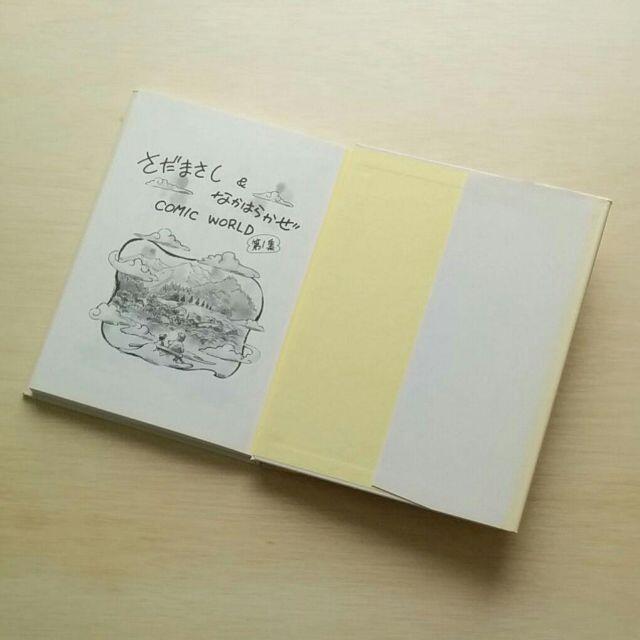 さだまさし
&
なかはらかぜ
COMIC WORLD
第1集